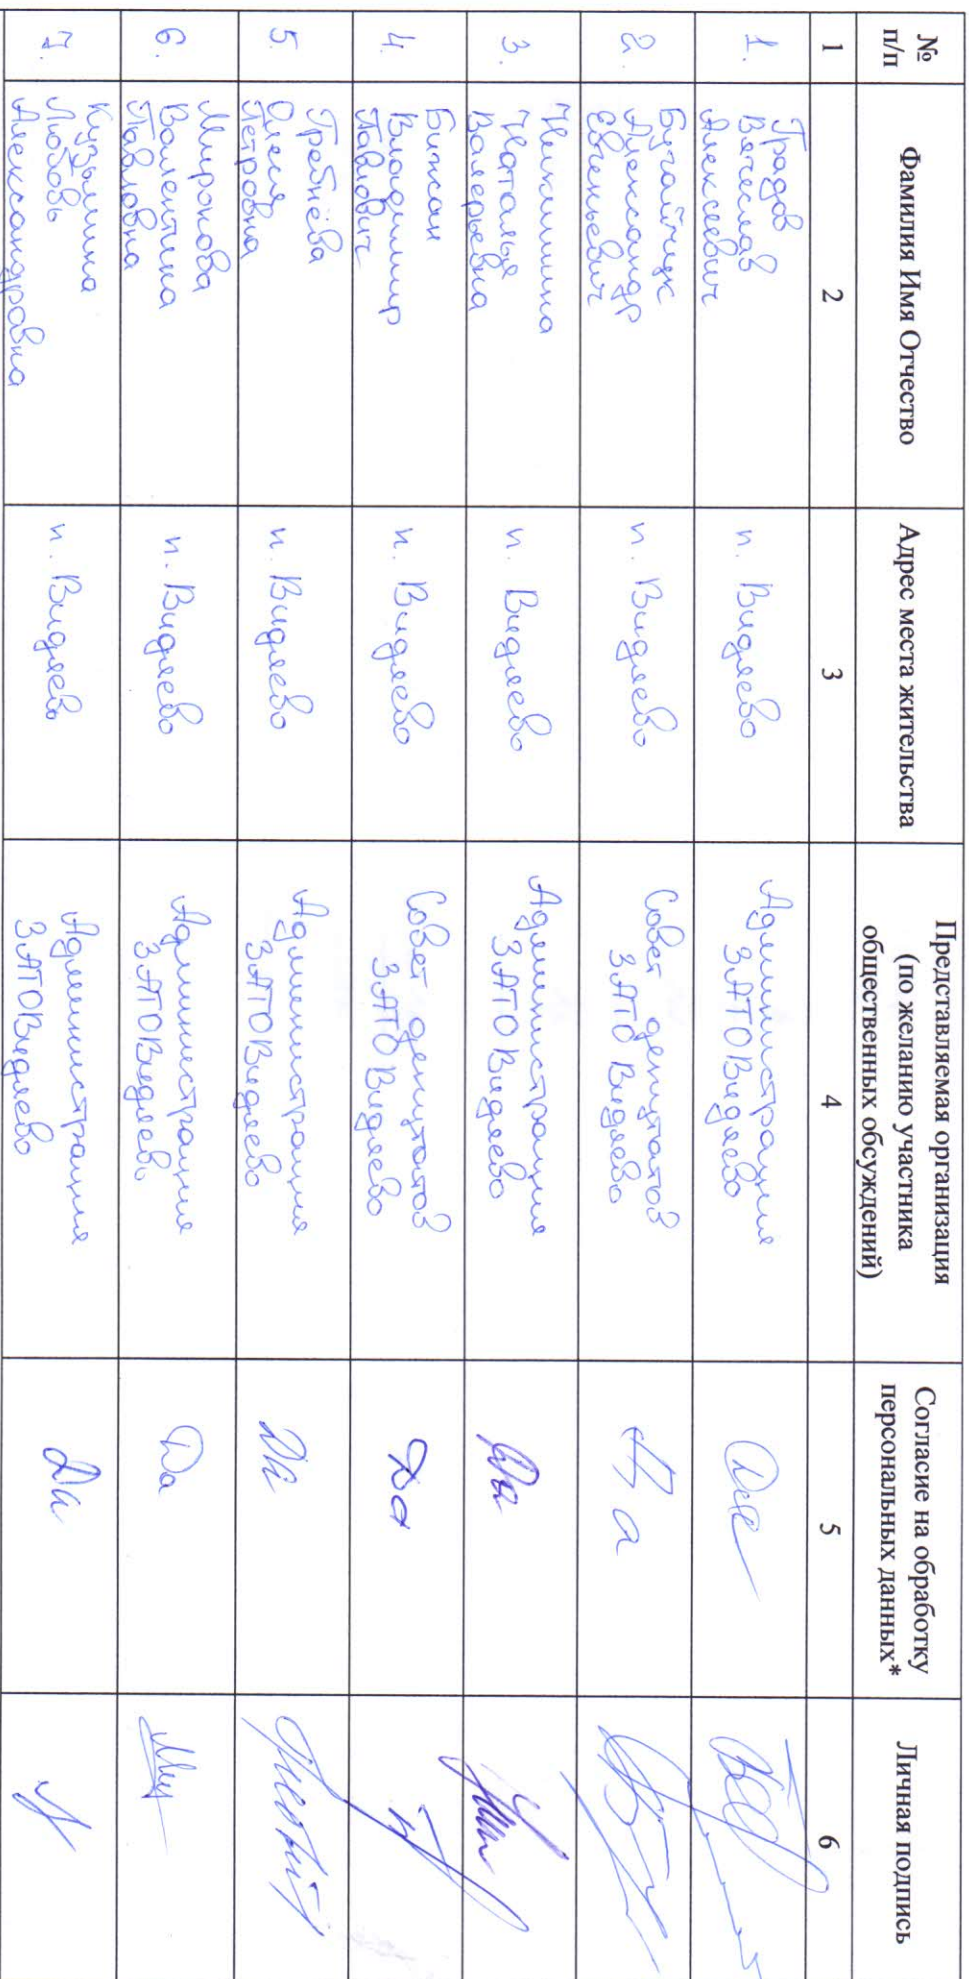 №
п/п
Фамилия Имя Отчество
Адрес места жительства
Представляемая организация
(по желанию участника
общественных обсуждений)
Согласие на обработку
персональных данных*
Личная подпись
1
2
3
4
5
6
1.
Градов
Вячеслав
Алексеевич
п. Видяево
Администрация
ЗАТО Видяево
Да
2.
Бугайчук
Александр
Евгеньевич
п. Видяево
Совет депутатов
ЗАТО Видяево
Да
3.
Никишина
Наталья
Валерьевна
п. Видяево
Администрация
ЗАТО Видяево
Да
4.
Бижсан
Владимир
Павлович
п. Видяево
Совет депутатов
ЗАТО Видяево
Да
5.
Гребнёва
Олеся
Петровна
п. Видяево
Администрация
ЗАТО Видяево
Да
6.
Миронова
Валентина
Павловна
п. Видяево
Администрация
ЗАТО Видяево
Да
7.
Кузьмина
Любовь
Александровна
п. Видяево
Администрация
ЗАТО Видяево
Да